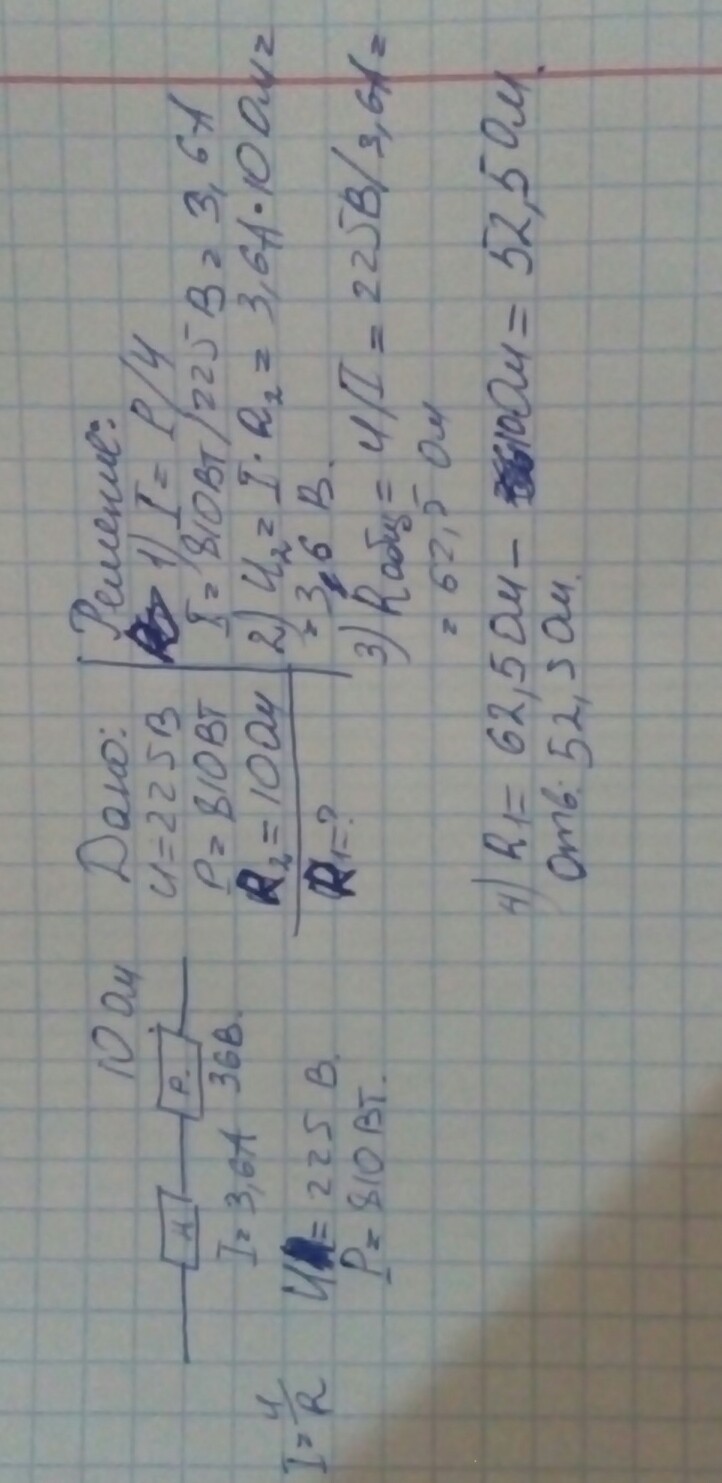 10 Ом
И Р.
I = 3,6А 36В.
I = U/R
U = 225 В.
P = 810 Вт.
Дано:
U = 225 В
P = 810 Вт
R2 = 10 Ом
R1 = ?
Решение:
1) I = P/U
I = 810Вт/225 В = 3,6А
2) U2 = I · R2 = 3,6А · 10 Ом =
= 36 В.
3) R общ = U/I = 225В/3,6А =
= 62,5 Ом
4) R1 = 62,5 Ом – 10 Ом = 52,5 Ом.
Отв: 52,5 Ом.